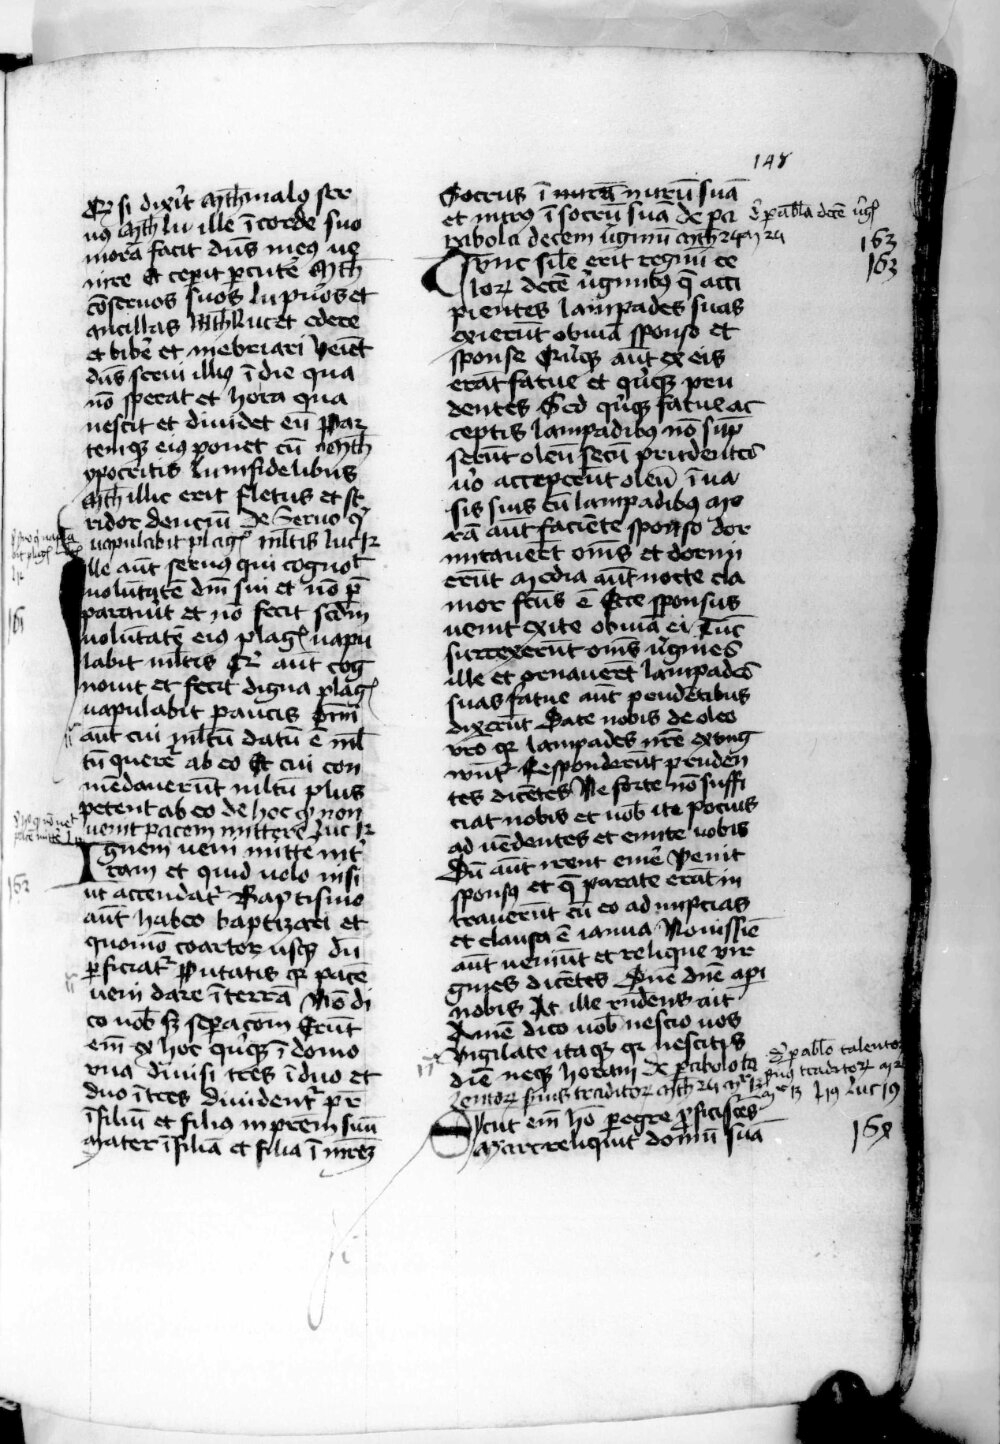 148
Qr si dixit Mth malꝰ ser
uꝰ Mth Lu ille ī corde suo
morā facit dn̄s meꝰ ue
nire Et ceperit ꝑcutē Mth
cōseruos suos Lu pu̇os et
ancillas Mth Luc et edere
et bibē et inebriari Veiēt
dn̄s serui illiꝰ ī die qua
nō sperat et hora qua
nescit et diuidet eū Par
temqꝫ eiꝰ ponet cū Mth
ypocritis Lu infidelibus
Mth illic erit fletus et st
ridor denciū De Seruo q̇
uapulabit plagꝭ ml̄tis Luc 12
Ille aūt seruꝰ qui cognoī
uolūtatē dn̄i sui et nō p̄
parauit et nō fecit scd̄m
uolūtatē eiꝰ plagꝭ uapu
labit ml̄tis Qi̇ aūt cog
nouit et fecit digna plagꝭ
uapulabit paucis Om̄i
aūt cui ml̄tū datū ē ml̄
tū querēt ab eo Et cui con
mēdauerūt ml̄tū plus
petent ab eo de hoc qꝫ non
uenit pacem mittere Luc 12
Ignem ueni mittē in t̄
ram et quid uolo nisi
ut accendatᷣ Baptismo
aūt habeo baptizari et
quomō coartor usqꝫ dū
ꝑficiatᷣ Putatis qꝛ pacē
ueni dare ī terrā Nō di
co uob̄ sꝫ seꝑacōm Erūt
em̄ ex hoc qu̇qꝫ ī domo
vna diuisi tres ī duo et
duo ī tres diuidentᷣ pr̄
ī filiū et filiꝰ in pr̄em suū
Mater ī filiā et filia ī mr̄eꝫ
161
162
Socrus ī nurū suā
et nurꝰ ī socrū suā De pa
rabola decem v̇ginū Mth 25
Tunc sil̄e erit regnū ce
loꝝ decē v̇ginibꝰ q̄ acci
pientes lampades suas
exierūt obuiā sponso et
sponse Qu̇qꝫ aūt ex eis
erāt fatue et qu̇qꝫ pru
dentes Sed qu̇qꝫ fatue ac
ceptis lampadibꝰ nō sūp
serūt oleū secū prudentes
u̇o acceperūt oleū ī ua
sis suis cū lampadibus Mo
rā aūt faciēte sponso dor
mitauerūt om̄s et dormi
erūt Media aūt nocte cla
mor fc̄us ē Ecce sponsus
uenit exite obuiā ei Tūc
surrexerūt om̄s v̇gines
ille et ornauerūt lampades
suas fatue aūt prudētibus
dixerūt Date nobis de oleo
vr̄o qꝛ lampades nr̄e exting
wūtᷣ Responderūt pruden
tes dicētes Ne forte nō suffi
ciat nobis et uob̄ ite pocius
ad uēdentes et emite uobis
Dū aūt irent emē Venit
sponsꝰ et q̄ parate erāt in
trauerūt cū eo ad nupcias
et clausa ē ianua Nouissīe
aūt ueniūt et relique vir
gines dicētes Dn̄e dn̄e aperi
nobis At ille rn̄dens ait
Amē dico uob̄ nescio uos
Vigilate itaqꝫ qꝛ nescitis
diē neqꝫ horam De ꝑabola ta
lentoꝝ siue traditor Mth 25 Mr 13 Luc 19
Sicut em̄ hō ꝑegre ꝓficiscēs
Mar reliquit domū suā
ꝑabl̄a decē v̇gꝭ
163
163
ꝑabl̄o talentoꝝ
Luc 19